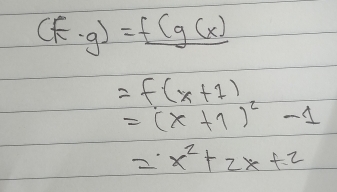 (f · g) = f(g(x)
= f(x+1)
= (x+1)² -1
= x² + 2x + 2